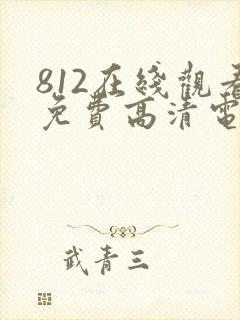 812在线觀看
免費高清電
武青三